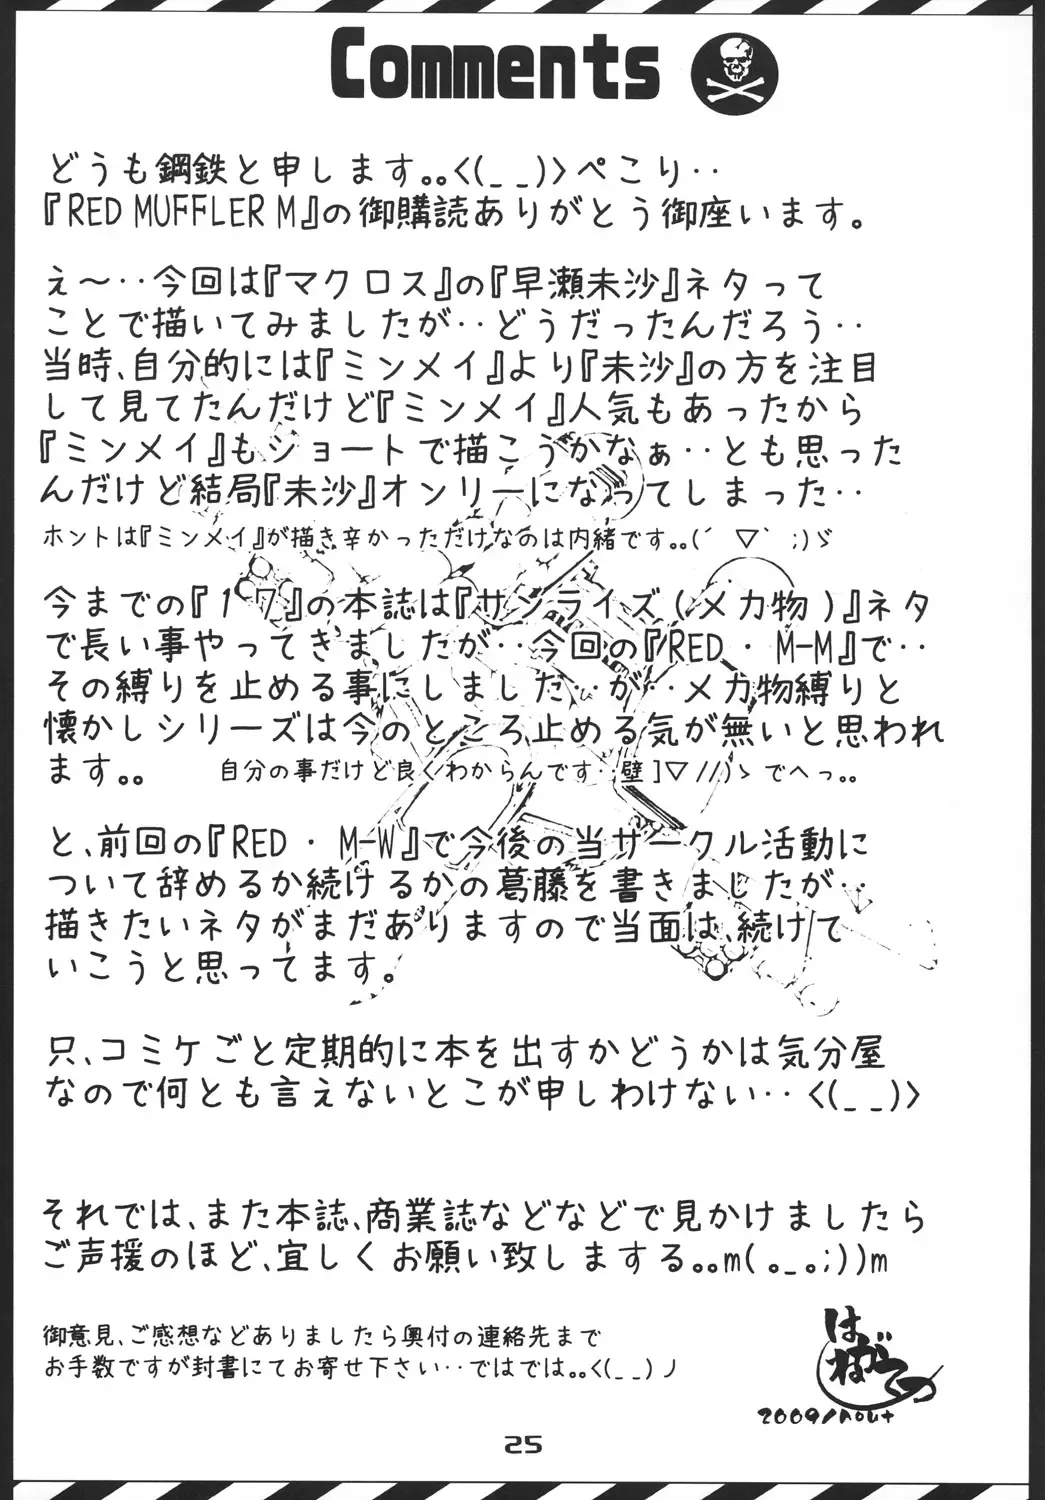 Comments
どうも鋼鉄と申します｡｡<(_ _)>ぺこり‥
『RED MUFFLER M』の御購読ありがとう御座います｡
え～‥今回は『マクロス』の『早瀬未沙』ネタって
ことで描いてみましたが‥どうだったんだろう‥
当時､自分的には『ミンメイ』より『未沙』の方を注目
して見てたんだけど『ミンメイ』人気もあったから
『ミンメイ』もショートで描こうかなぁ‥とも思った
んだけど結局『未沙』オンリーになってしまった‥
ホントは『ミンメイ』が描き辛かっただけなのは内緒です｡｡(´ ▽` ;)ゞ
今までの『17』の本誌は『サンライズ(メカ物)』ネタ
で長い事やってきましたが‥今回の『RED・M-M』で‥
その縛りを止める事にしました‥が‥メカ物縛りと
懐かしシリーズは今のところ止める気が無いと思われ
ます｡｡ 自分の事だけど良くわからんです‥壁]▽//)ゝでへっ｡｡
と､前回の『RED・M-W』で今後の当サークル活動に
ついて辞めるか続けるかの葛藤を書きましたが‥
描きたいネタがまだありますので当面は､続けて
いこうと思ってます｡
只､コミケごと定期的に本を出すかどうかは気分屋
なので何とも言えないとこが申しわけない‥<(_ _)>
それでは､また本誌､商業誌などなどで見かけましたら
ご声援のほど､宜しくお願い致しまする｡｡m( ｡_｡;))m
御意見､ご感想などありましたら奥付の連絡先まで
お手数ですが封書にてお寄せ下さい‥ではでは｡｡<(_ _)ノ
25